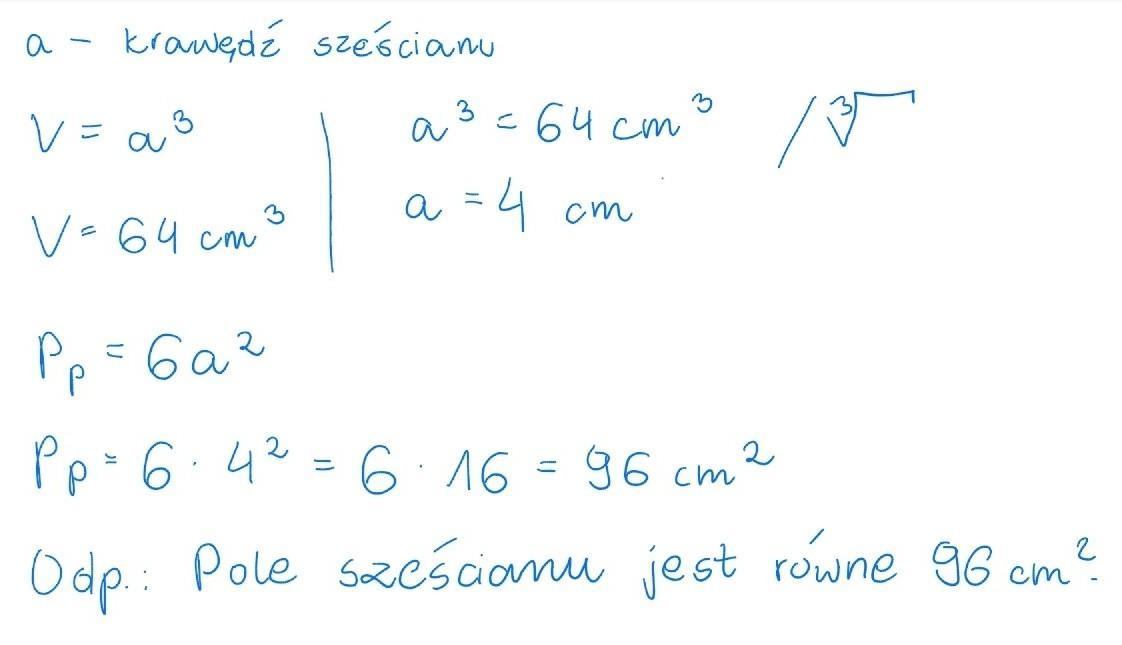 a - krawędź sześcianu
V = a³
V = 64 cm³
a³ = 64 cm³ /∛
a = 4 cm
Pp = 6a²
Pp = 6 · 4² = 6 · 16 = 96 cm²
Odp.: Pole sześcianu jest równe 96 cm².